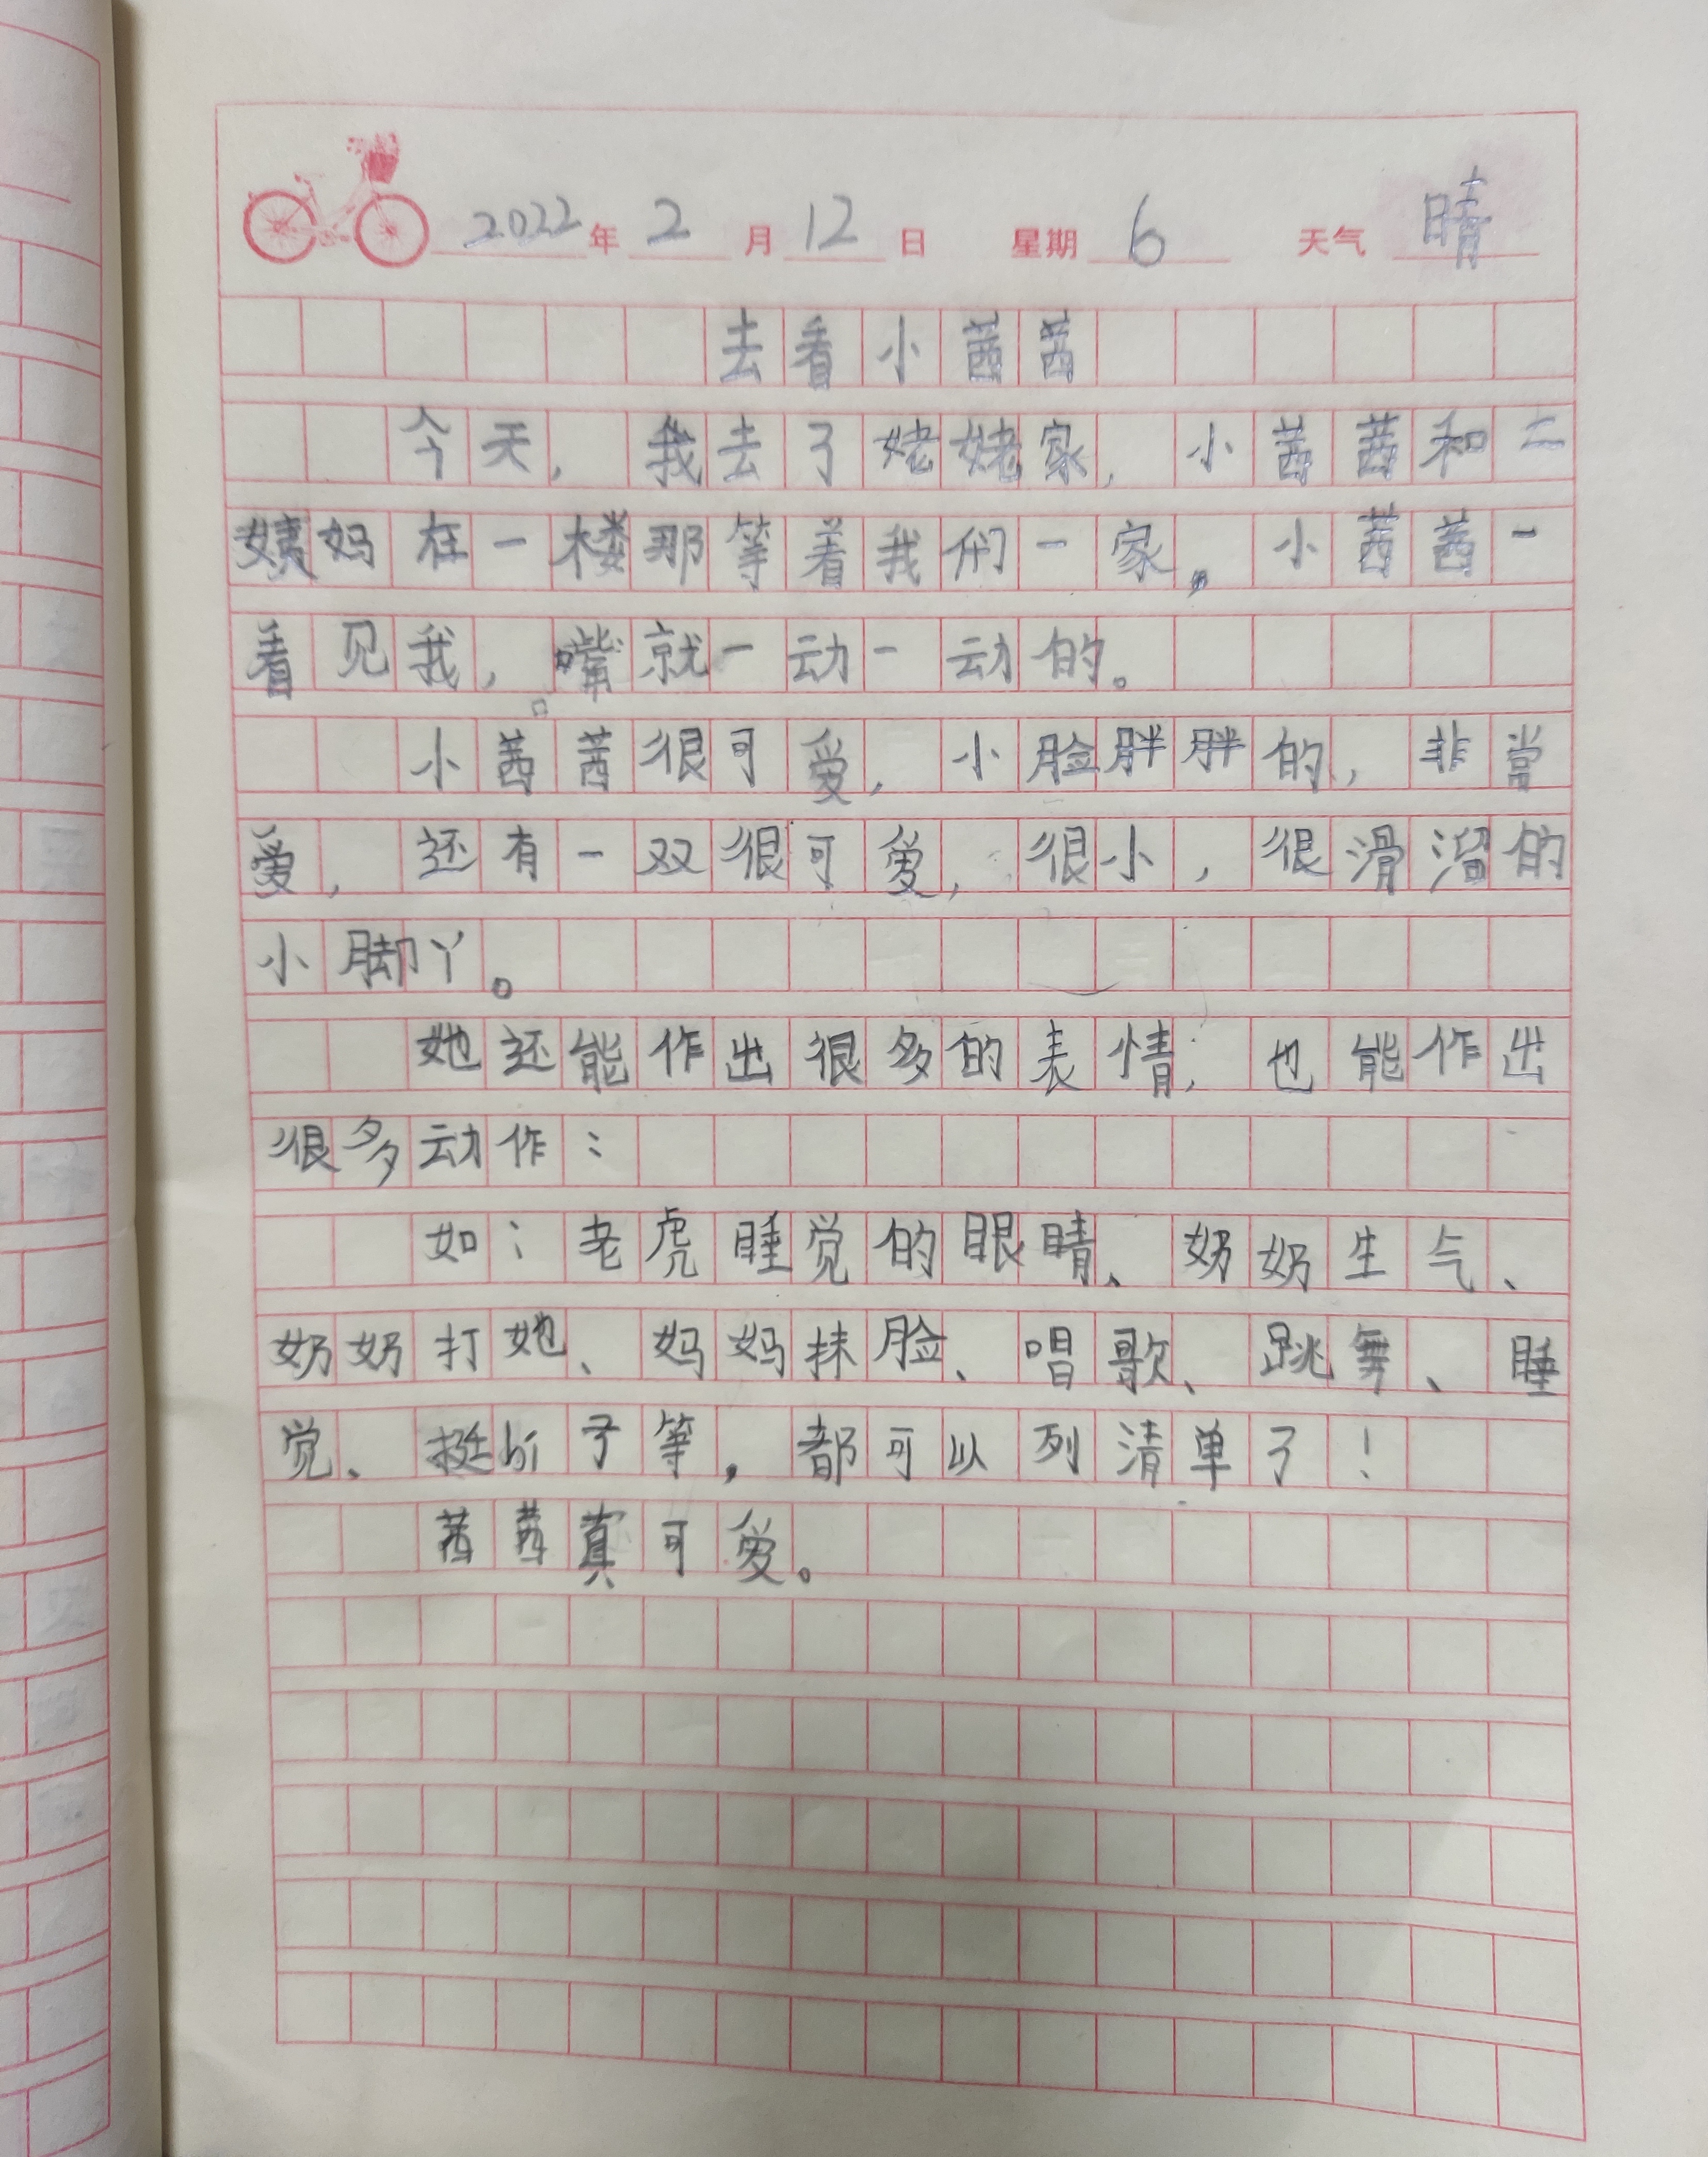 2022年2月12日 星期6 天气晴
去看小茜茜
今天,我去了姥姥家,小茜茜和二
姨妈在一楼那等着我们一家。小茜茜一
看见我,嘴就一动一动的。
小茜茜很可爱,小脸胖胖的,非常
爱,还有一双很可爱,很小,很滑溜的
小脚丫。
她还能作出很多的表情,也能作出
很多动作:
如:老虎睡觉的眼睛、奶奶生气、
奶奶打她、妈妈抹脸、唱歌、跳舞、睡
觉、挺子等,都可以列清单了!
茜茜真可爱。